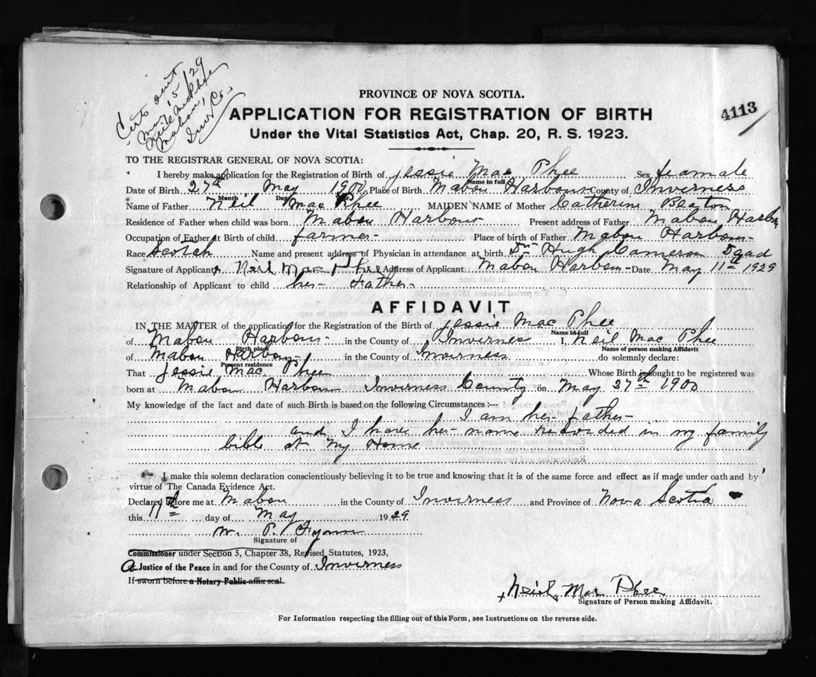 Certs out
May 15/29
Neil MacPhee
Mabou,
Inv. Co.
4113
PROVINCE OF NOVA SCOTIA.
APPLICATION FOR REGISTRATION OF BIRTH
Under the Vital Statistics Act, Chap. 20, R. S. 1923.
TO THE REGISTRAR GENERAL OF NOVA SCOTIA:
I hereby make application for the Registration of Birth of Jessie Mac Phee Sex feamale
Name in full
Date of Birth 27th May 1900 Place of Birth Mabou Harbour County of Inverness
Month Day
Name of Father Neil Mac Phee MAIDEN NAME of Mother Catherine Beaton
Residence of Father when child was born Mabou Harbour Present address of Father Mabou Harbr
Occupation of Father at Birth of child farmer Place of birth of Father Mabou Harbour
Race Scotch Name and present address of Physician in attendance at birth Dr Hugh Cameron Dead
Signature of Applicant x Neil Mac Phee Address of Applicant Mabou Harbour Date May 11th 1929
Relationship of Applicant to child her Father
AFFIDAVIT
IN THE MATTER of the application for the Registration of the Birth of Jessie Mac Phee
Name in full
of Mabou Harbour in the County of Inverness I, Neil Mac Phee
Birth place Name of person making Affidavit
of Mabou Harbour in the County of Inverness do solemnly declare:
Present residence
That Jessie Mac Phee Whose Birth sought to be registered was
born at Mabou Harbour Inverness County on May 27th 1900
My knowledge of the fact and date of such Birth is based on the following Circumstances :—
I am her father
and I have her name recorded in my family
bible at my Home
I make this solemn declaration conscientiously believing it to be true and knowing that it is of the same force and effect as if made under oath and by
virtue of The Canada Evidence Act.
Declared before me at Mabou in the County of Inverness and Province of Nova Scotia
this 11th day of May 1929
W. P.
Signature of
Commissioner under Section 5, Chapter 38, Revised Statutes, 1923,
A Justice of the Peace in and for the County of Inverness
If sworn before a Notary Public affix seal.
x Neil Mac Phee
Signature of Person making Affidavit.
For Information respecting the filling out of this Form, see Instructions on the reverse side.